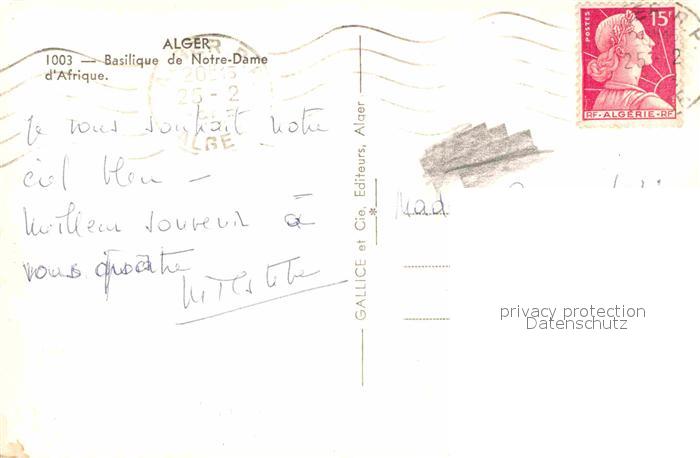 ALGER
1003 — Basilique de Notre-Dame
d'Afrique.
20
25 - 2
ALGE
POSTES
15F
RF - ALGÉRIE - RF
25 2
Je vous souhait notre
ciel bleu —
Meilleur souvenir à
vous quatre
GALLICE et Cie, Editeurs, Alger
Mad
privacy protection
Datenschutz